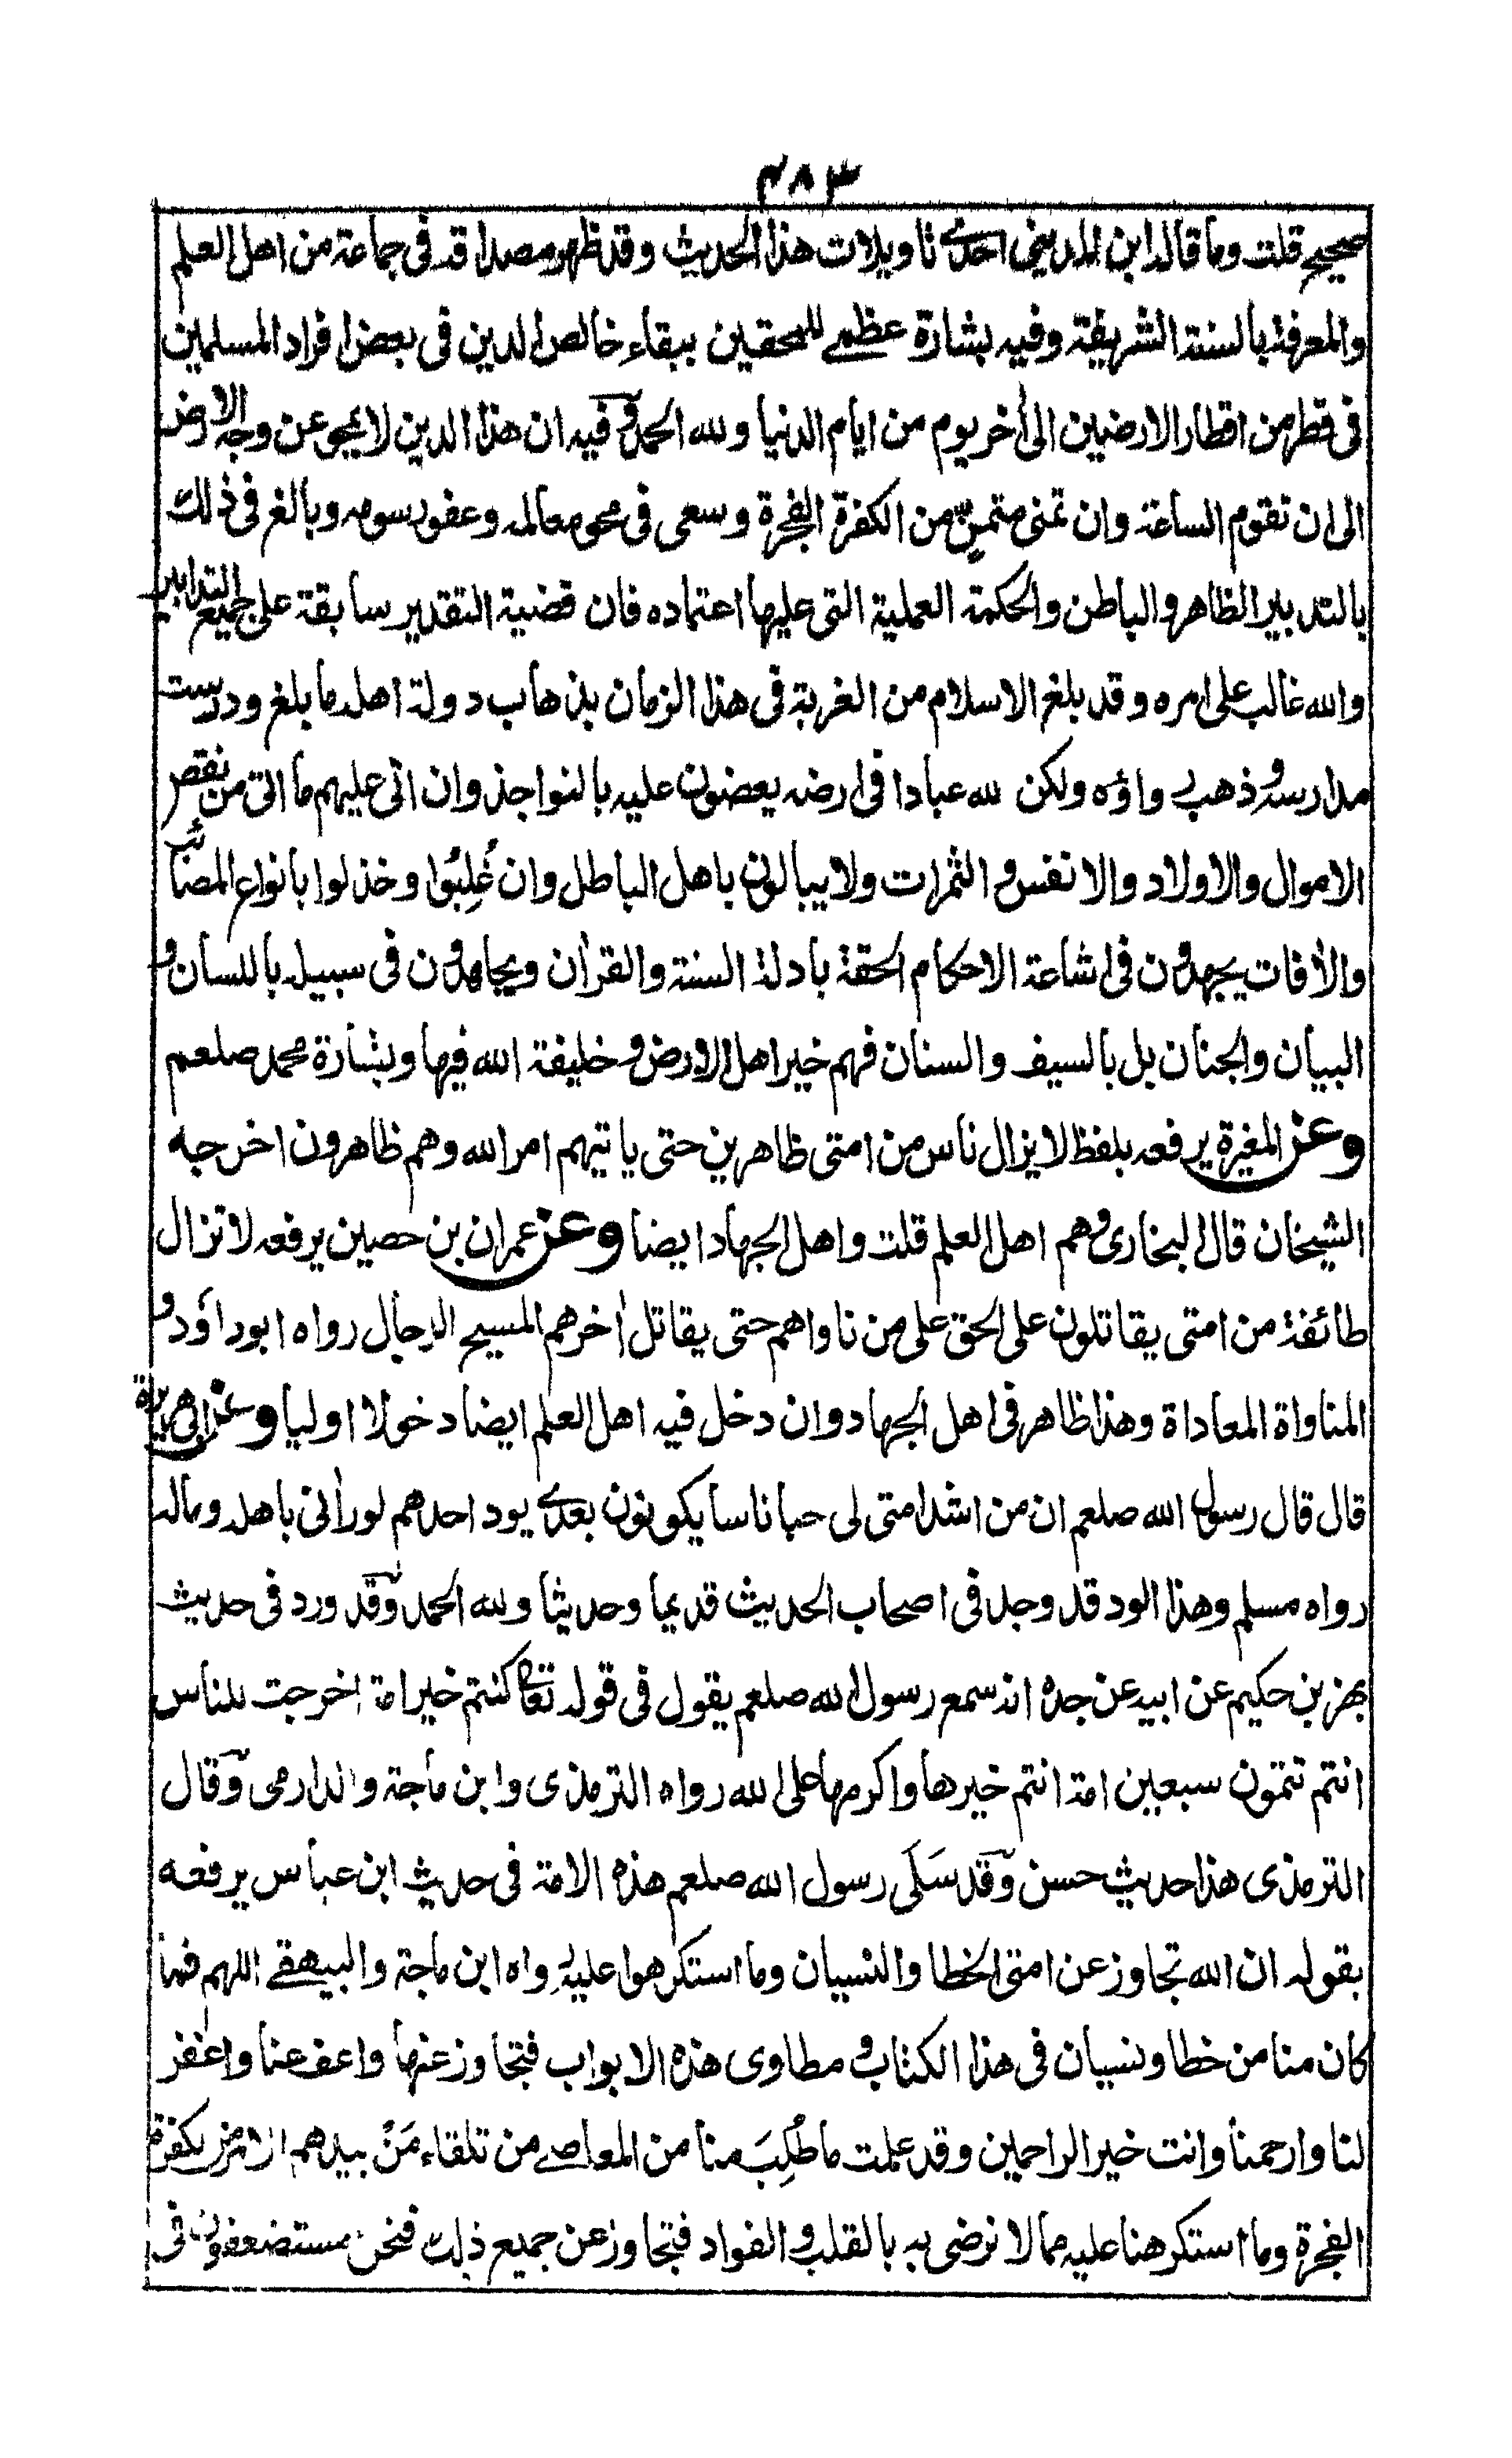 ٤٨٣
صحيح قلت وما قاله ابن المديني احدى تاويلات هذا الحديث وقد ظهر مصداقه في جماعة من اهل العلم
والمعرفة بالسنة الشريفة وفيه بشارة عظمى للمحقين ببقاء خالص الدين في بعض افراد المسلمين
في قطر من اقطار الارضين الى أخر يوم من ايام الدنيا ولله الحمد وفيه ان هذا الدين لا يمحو عن وجه الارض
الى ان تقوم الساعة وان تمنى متمن من الكفرة الفجرة وسعى في محو معالمه وعفو رسومه وبالغ في ذلك
بالتدبير الظاهر والباطن والحكمة العملية التي عليها اعتماده فان قضية التقدير سابقة على جميع التدابير
والله غالب على امره وقد بلغ الاسلام من الغربة في هذا الزمان بذهاب دولة اهله ما بلغ ودرست
مدارسه وذهب رواؤه ولكن لله عبادا في ارضه يعضون عليه بالنواجذ وان اتى عليهم ما اتى من نقص
الاموال والاولاد والانفس والثمرات ولا يبالون باهل الباطل وان غُلِبُوا وخذلوا بانواع المصائب
والأفات يجهدون في اشاعة الاحكام الحقة بادلة السنة والقرأن ويجاهدون في سبيله باللسان و
البيان والجنان بل بالسيف والسنان فهم خير اهل الارض وخليفة الله فيها وبشارة محمد صلعم
وعن المغيرة يرفعه بلفظ لا يزال ناس من امتي ظاهرين حتى ياتيهم امر الله وهم ظاهرون اخرجه
الشيخان قال البخاري وهم اهل العلم قلت واهل الجهاد ايضا وعن عمران بن حصين يرفعه لا تزال
طائفة من امتي يقاتلون على الحق على من ناواهم حتى يقاتل أخرهم المسيح الدجال رواه ابو داؤد و
المناواة المعاداة وهذا ظاهر في اهل الجهاد وان دخل فيه اهل العلم ايضا دخولا اوليا وعن ابي هريرة
قال قال رسول الله صلعم ان من اشد امتي لي حبا ناسا يكونون بعدى يود احدهم لو رأني باهله وماله
رواه مسلم وهذا الود قد وجد في اصحاب الحديث قديما وحديثا ولله الحمد وقد ورد في حديث
بهز بن حكيم عن ابيه عن جده انه سمع رسول الله صلعم يقول في قوله تعالى كنتم خير امة اخرجت للناس
انتم تتمون سبعين امة انتم خيرها واكرمها على الله رواه الترمذي وابن ماجة والدارمي وقال
الترمذي هذا حديث حسن وقد سَلَّى رسول الله صلعم هذه الامة في حديث ابن عباس يرفعه
بقوله ان الله تجاوز عن امتي الخطا والنسيان وما استكرهوا عليه رواه ابن ماجة والبيهقي اللهم فما
كان منا من خطا ونسيان في هذا الكتاب و مطاوي هذه الابواب فتجاوز عنها واعف عنا واغفر
لنا وارحمنا وانت خير الراحمين وقد علمت ما طُلِبَ منا من المعاصي من تلقاء مَنْ بيدهم الامر من الكفرة
الفجرة وما استكرهنا عليه مما لا نرضى به بالقلب والفواد فتجاوز عن جميع ذلك فنحن مستضعفون في